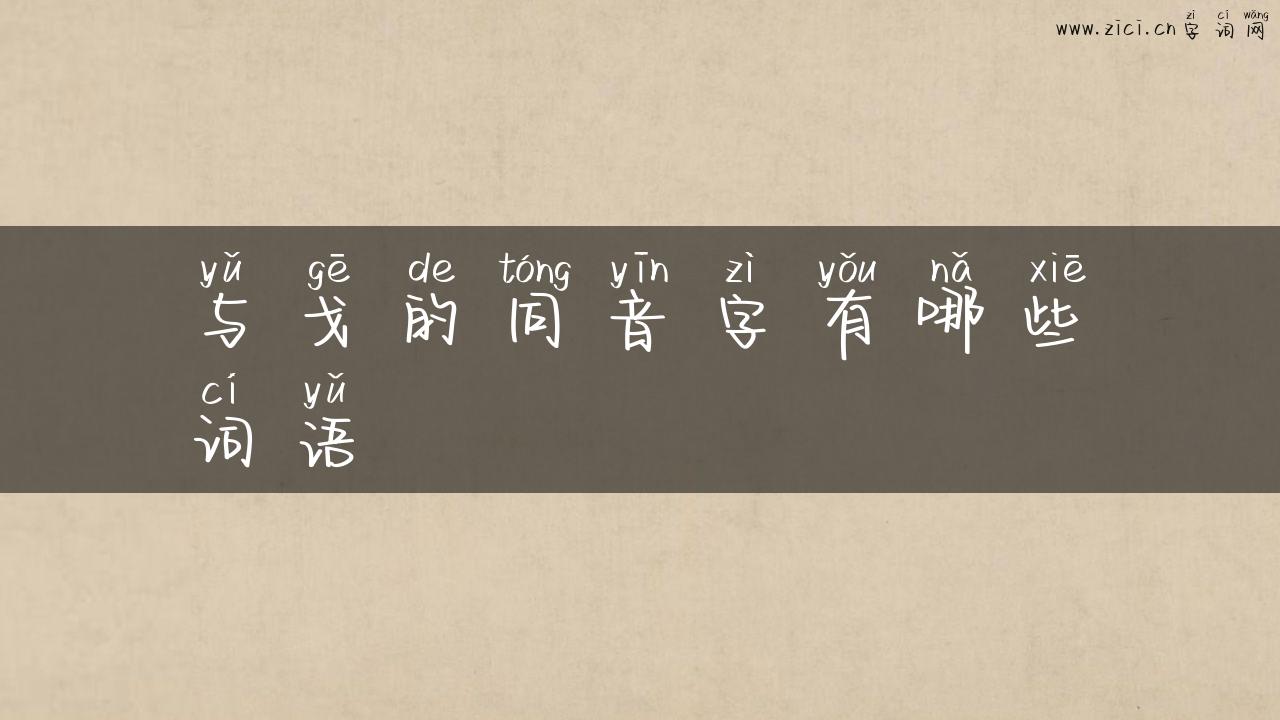 zì cí wǎng
www.zici.cn 字词网
yǔ gē de tóng yīn zì yǒu nǎ xiē
与戈的同音字有哪些
cí yǔ
词语